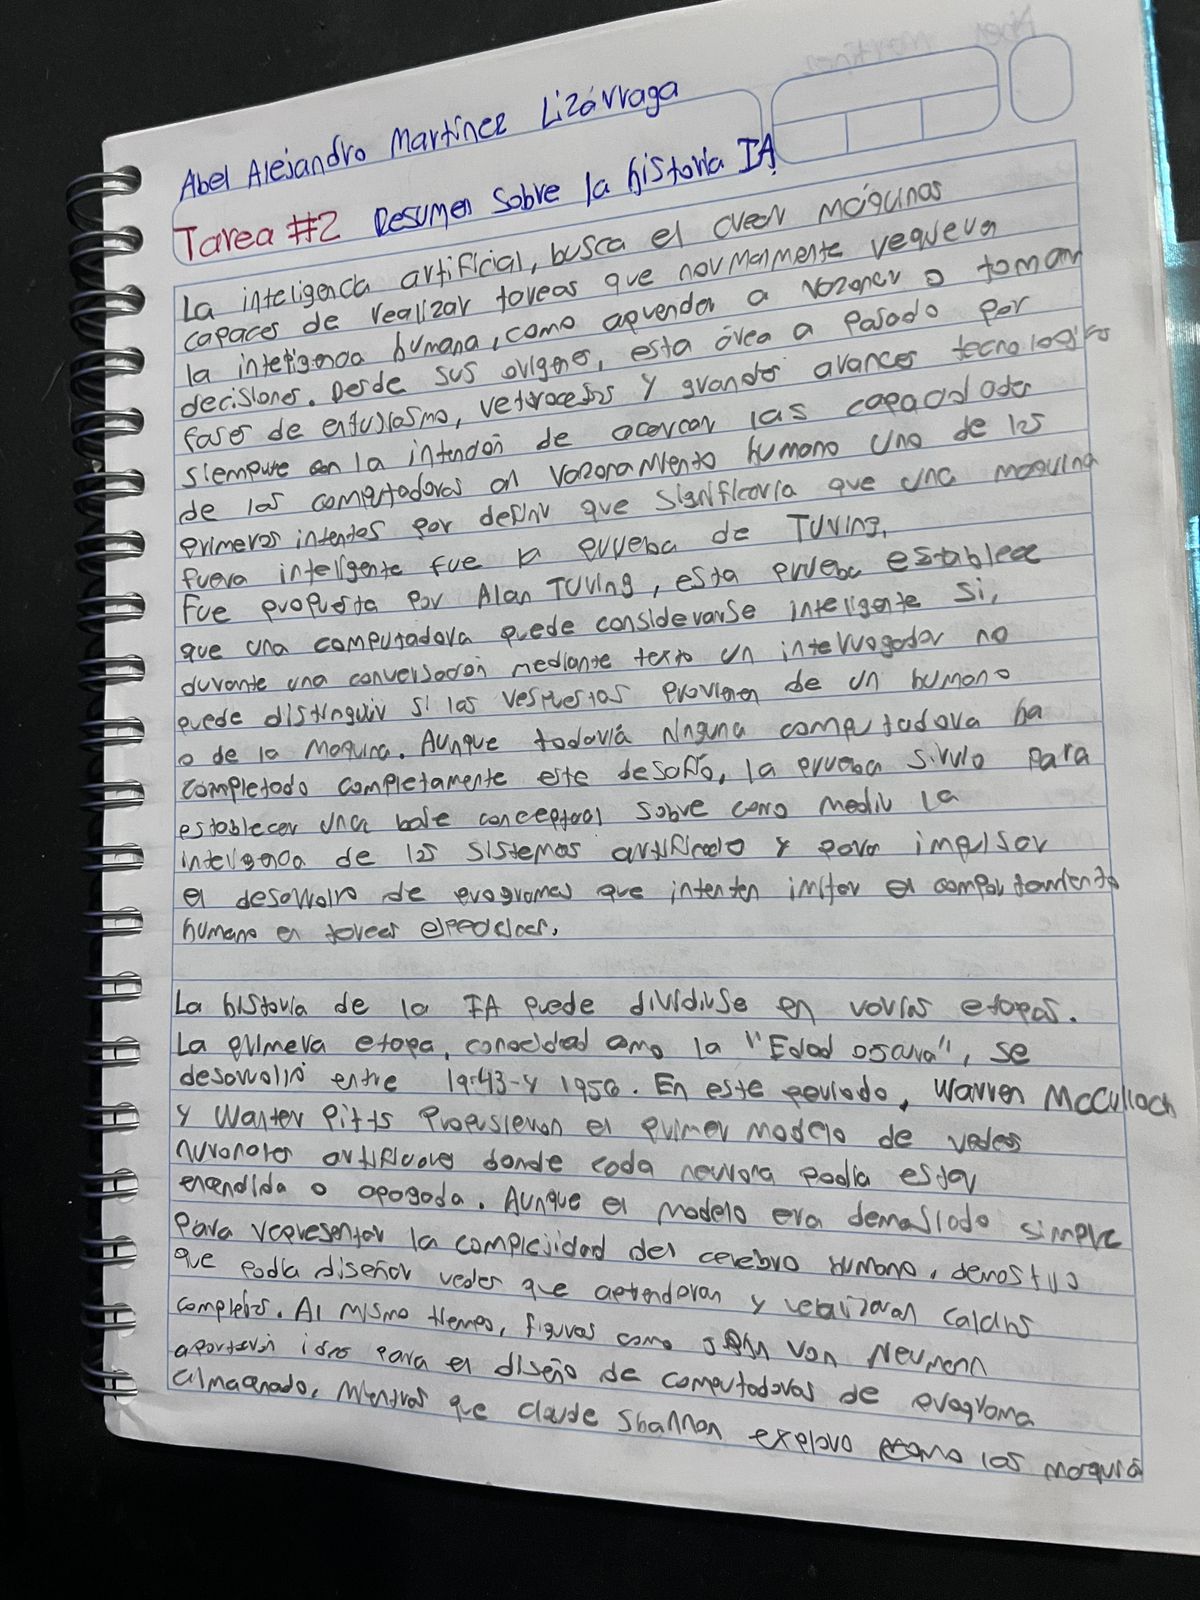 Abel Alejandro Martínez Lizárraga
Tarea #2 Resumen sobre la historia IA
La inteligencia artificial, busca el crear máquinas
capaces de realizar tareas que normalmente requeren
la inteligencia humana, como aprender a razonar o tomar
decisiones. Desde sus origenes, esta área a pasado por
fases de entusiasmo, retrocesos y grandes avances tecnologicos
siempre con la intención de acercar las capacidades
de las computadoras al razonamiento humano uno de los
primeros intentos por definir que significaria que una maquina
fuera inteligente fue la prueba de Turing.
Fue propuesta por Alan Turing, esta prueba establece
que una computadora puede considerarse inteligente si,
durante una conversación mediante texto un interrogador no
puede distinguir si las respuestas provienen de un humano
o de la maquina. Aunque todavía ninguna computadora ha
completado completamente este desafío, la prueba sirvio para
establecer una base conceptual sobre como medir la
inteligencia de los sistemas artificiales y para impulsar
el desarrollo de programas que intenten imitar el comportamiento
humano en tareas especificas.
La historia de la IA puede dividirse en varias etapas.
La primera etapa, conocidad como la "Edad oscura", se
desarrolló entre 1943-y 1956. En este periodo, Warren McCulloch
y Wanter Pitts Propusieron el primer modelo de redes
neuronales artificiales donde cada neurona podía estar
encendida o apagada. Aunque el modelo era demasiado simple
para representar la complejidad del cerebro humano, demostró
que podía diseñar redes que aprenderan y realizaran calculos
complejos. Al mismo tiempo, figuras como John Von Neumann
aportaron ideas para el diseño de computadoras de programa
almacenado, mientras que Claude Shannon exploro como las maquina